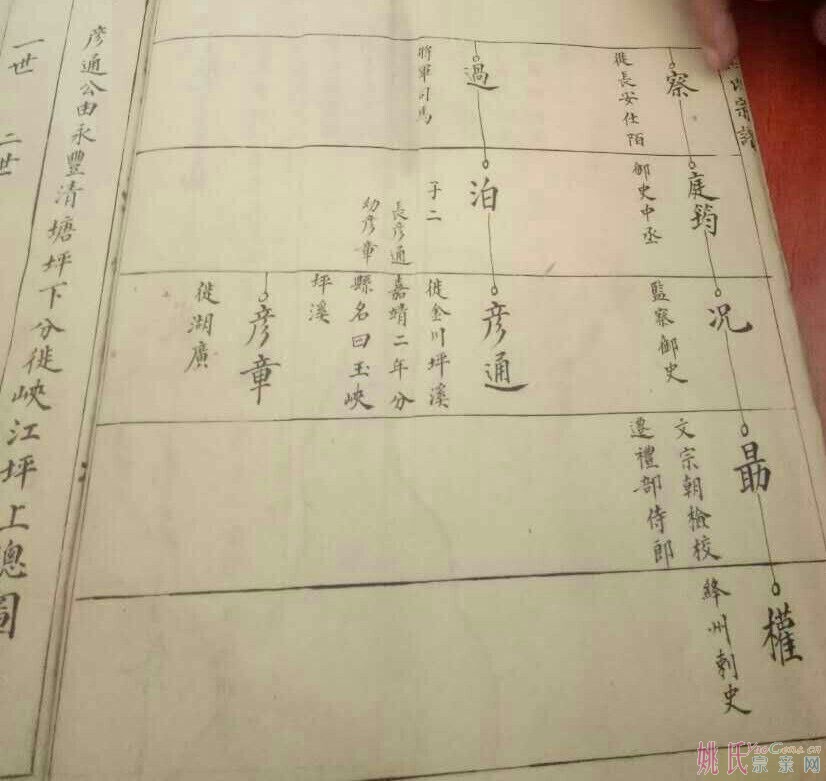 察
徙長安仕陌
庭筠
御史中丞
況
監察御史
勗
文宗朝檢校
遷禮部侍郎
權
絳州刺史
過
將軍司馬
泊
子二
長彥通
幼彥章
彥通
徙金川坪溪
嘉靖二年分
縣名曰玉峽
坪溪
彥章
徙湖廣
彥通公由永豐清塘坪下分徙峽江坪上總圖
一世 二世
姚氏宗亲网
YaoCens.cn